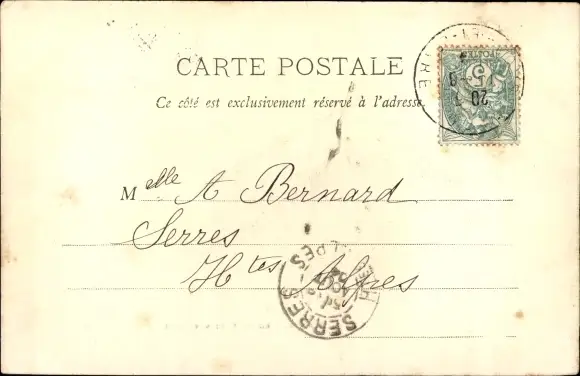 CARTE POSTALE
Ce côté est exclusivement réservé à l'adresse
Melle A Bernard
Serres
Htes Alpes
SERRES
ALPES
5
POSTES
20